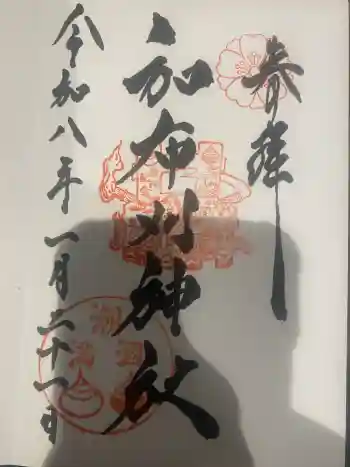 奉拝
和布刈神社
令和八年一月二十一日